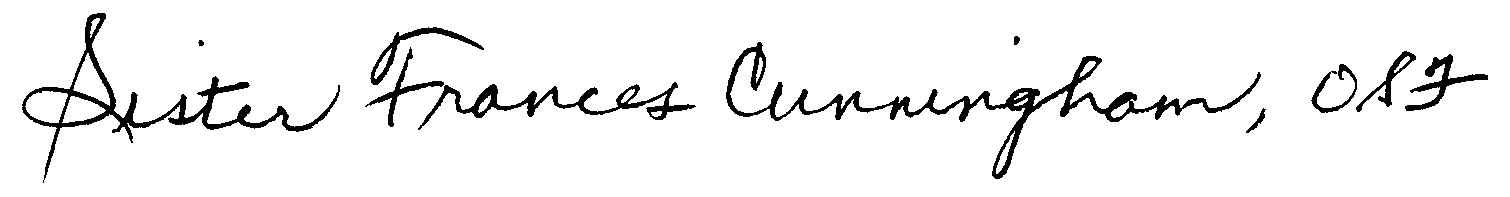 Sister Frances Cunningham, OSF